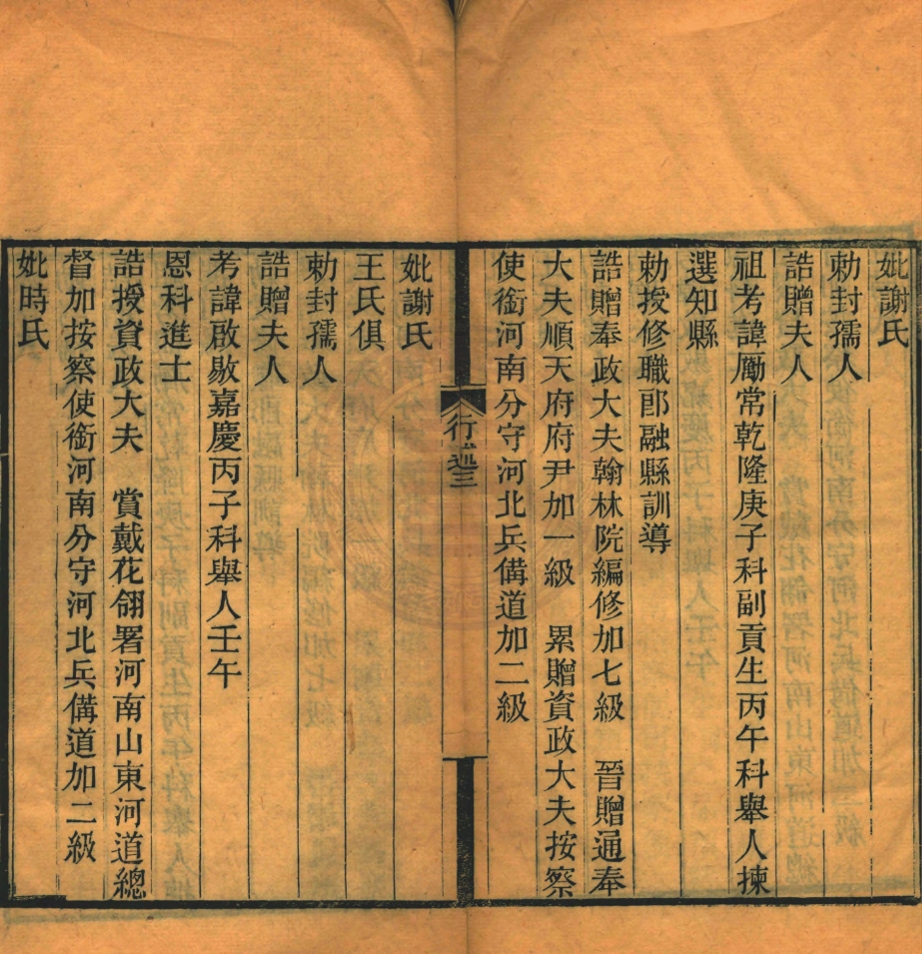 妣謝氏
勅封孺人
誥贈夫人
祖考諱勵常乾隆庚子科副貢生丙午科舉人揀
選知縣
勅授修職郎融縣訓導
誥贈奉政大夫翰林院編修加七級 晉贈通奉
大夫順天府府尹加一級 累贈資政大夫按察
使銜河南分守河北兵備道加二級
行述三
妣謝氏
王氏俱
勅封孺人
誥贈夫人
考諱啟敭嘉慶丙子科舉人壬午
恩科進士
誥授資政大夫 賞戴花翎署河南山東河道總
督加按察使銜河南分守河北兵備道加二級
妣時氏